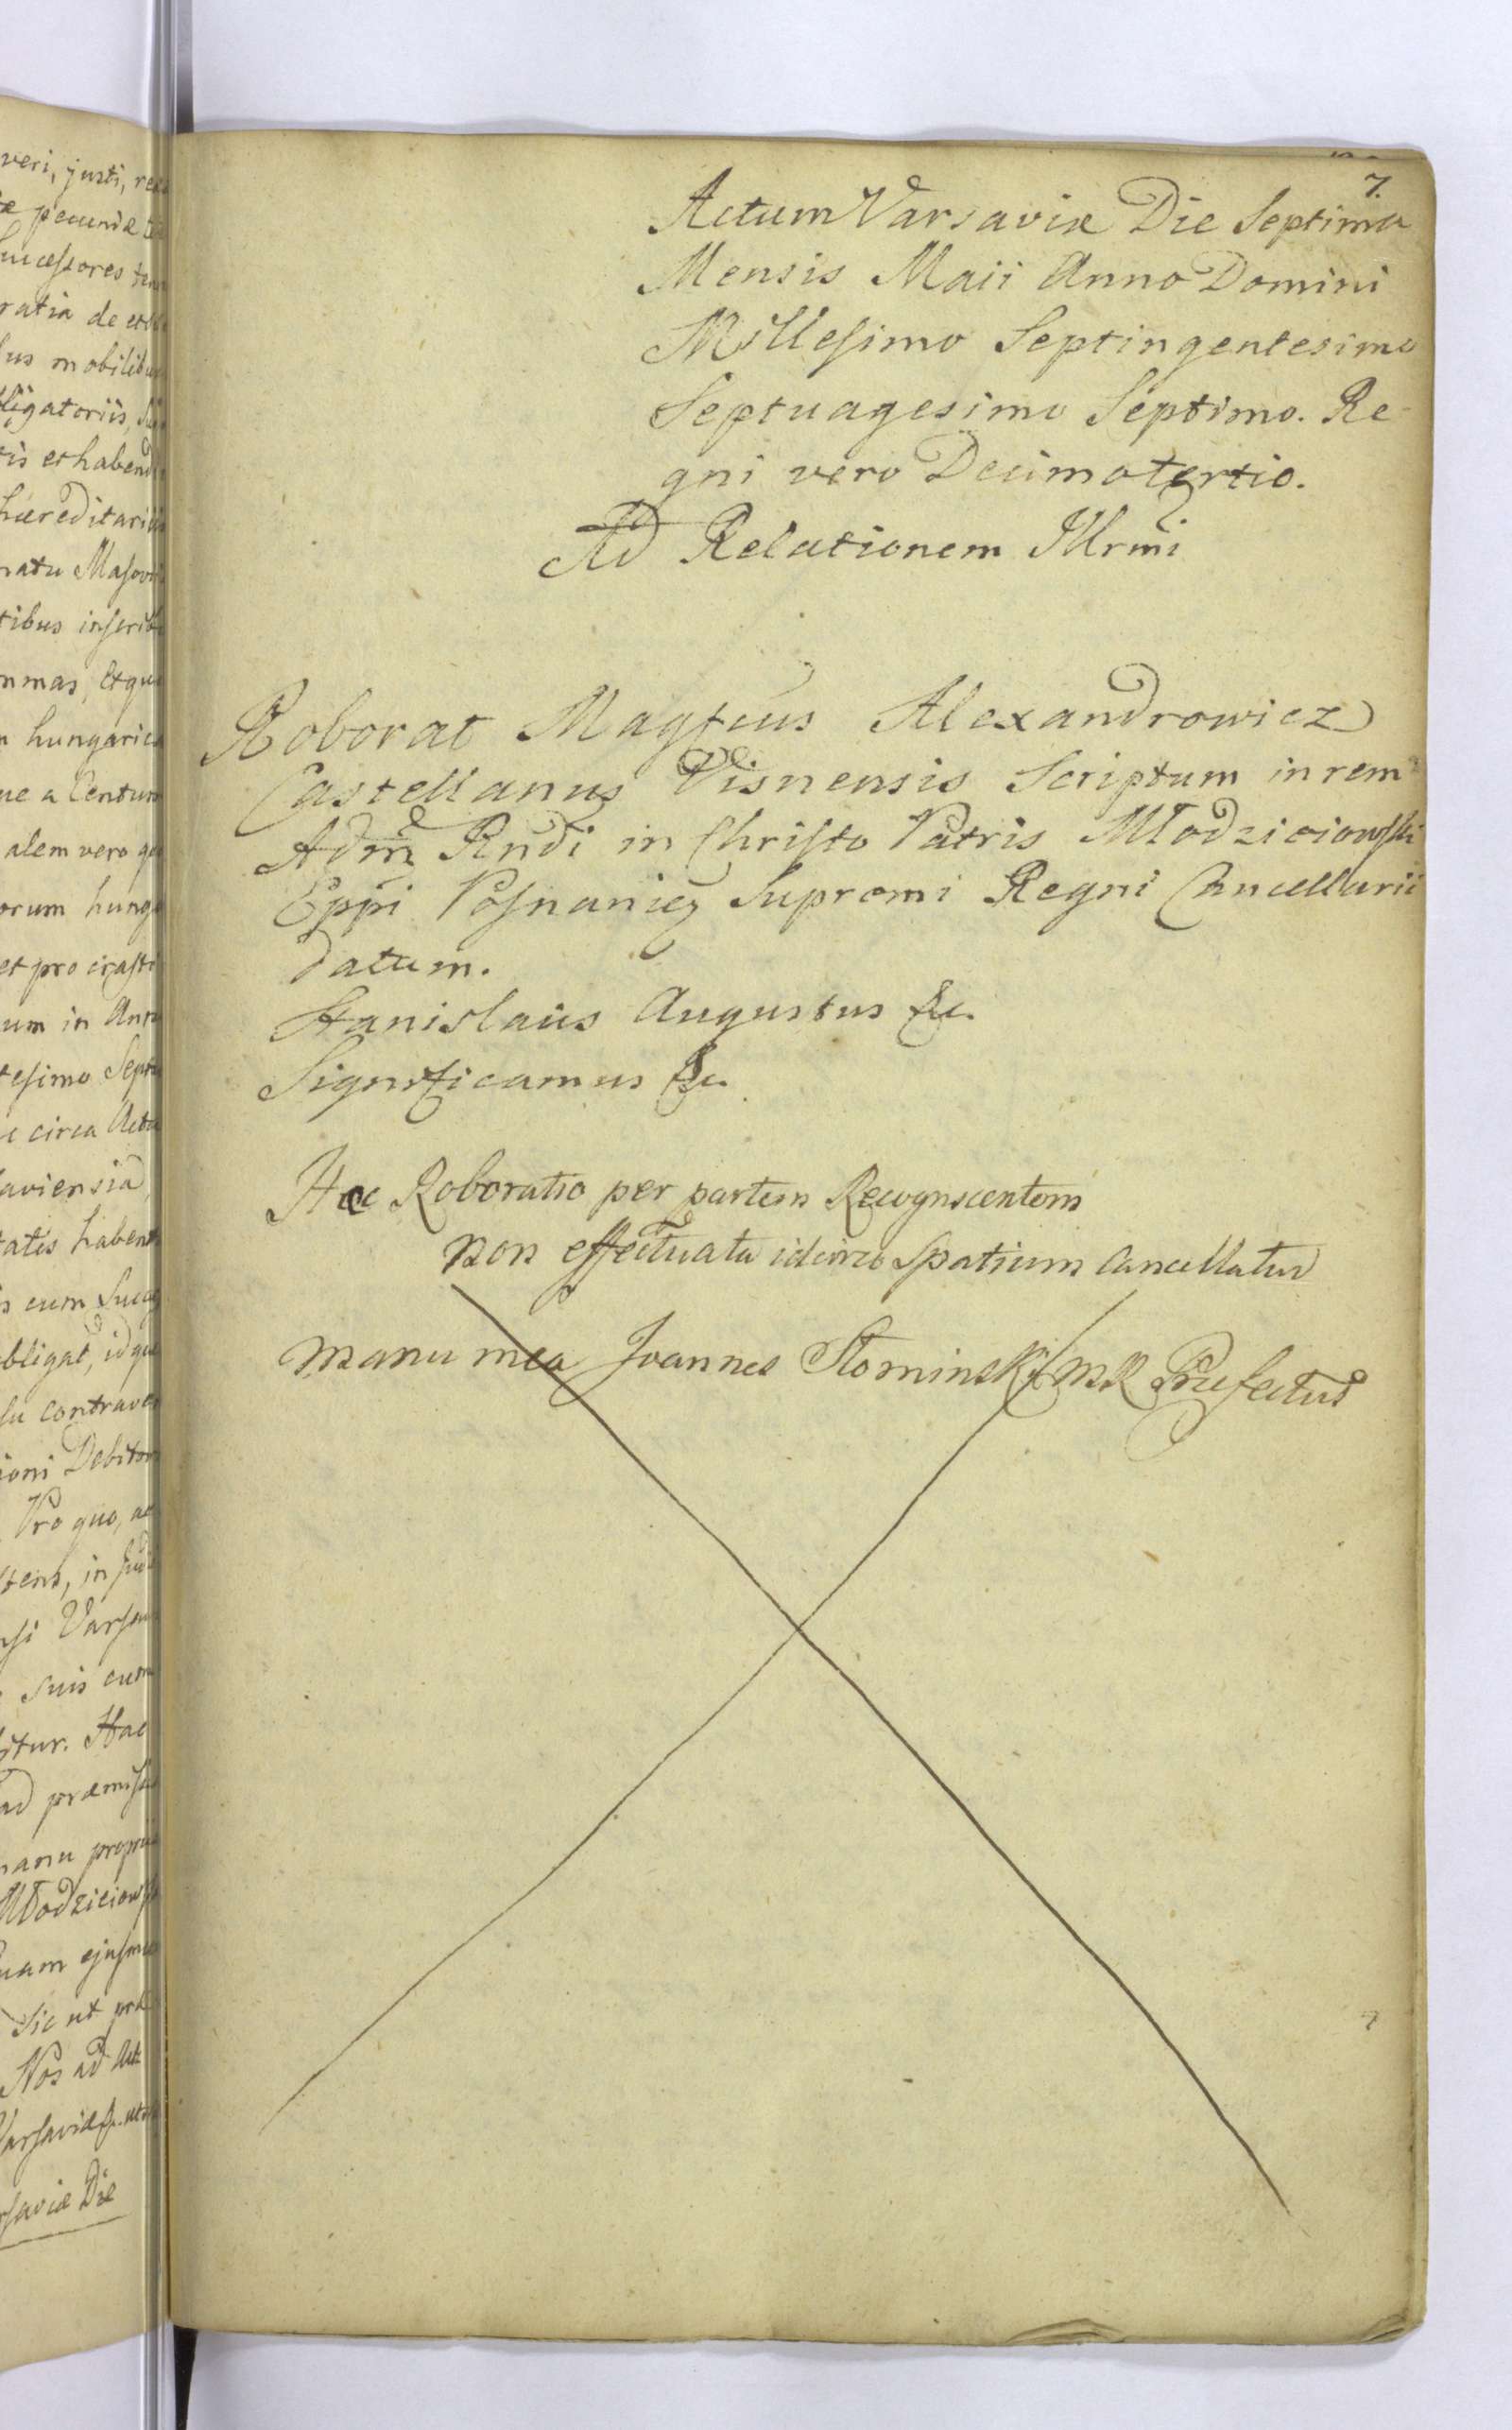 veri, justi, re
æ pecuniæ
ucessores
ratia de
us mobilib
ligatoriis,
tis et habend
hæreditari
natu Masov
tibus inscrib
mmas, et qu
n hungaric
ue a Centum
alem vero
orum hung
et pro crasti
um in Ann
tesimo Sept
c circa Acta
aviensia
tatis habent
s cum Succ
bligat, idque
su contrave
ioni Debitor
Pro quo, ac
stens, in Jud
nsi Varsav
suis cum
itur. Hac
ad præmiss
manu propri
Młodzieiows
uam ejusm
Sic ut præ
Nos ad Act
Varsaviæ
rsaviæ Die
7.
Actum Varsaviæ Die Septima
Mensis Maii Anno Domini
Millesimo Septingentesimo
Septuagesimo Septimo. Re
gni vero Decimotertio.
Ad Relationem Illrmi
Roborat Magfcus Alexandrowicz
Castellanus Visnensis Scriptum in rem
Adm Rndi in Christo Patris Młodzieiowski
Eppi Posnanien Supremi Regni Cancellarii
datum.
Stanislaus Augustus &c.
Significamus &c.
Hæc Roboratio per partem Recognoscentem
non effectuata idcirco spatium cancellatur
manu mea Joannes Słominski MK Præfectus